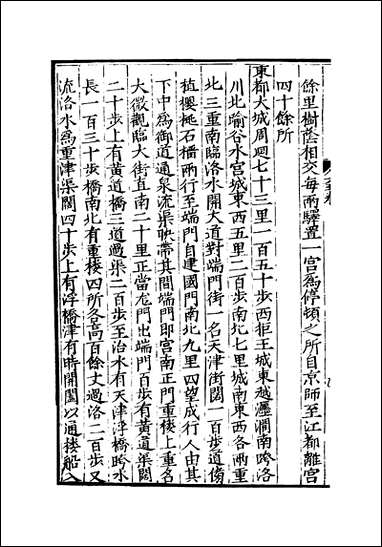 餘里樹蔭相交每兩驛置一宮為停頓之所自京師至江都離宮
四十餘所
東都大城周廻七十三里一百五十步西拒王城東越瀍澗南跨洛
川北踰谷水宮城東西五里二百步南北七里城南東西各兩重
北三重南臨洛水開大道對端門街一名天津街闊一百步道傍
植櫻桃石榴兩行至端門自建國門南北九里四望成行人由其
下中為御道通泉流渠映帶其間端門即宮南正門重樓上重名
大微觀臨大街直南二十里正當龙門出端門百步有黃道渠闊
二十步上有黃道橋三道過渠二百步至洛水有天津浮橋跨水
長一百三十步橋南北有重樓四所各高百餘丈過洛二百步又
流洛水為重津渠闊四十步上有浮橋津有時開闔以通樓船入